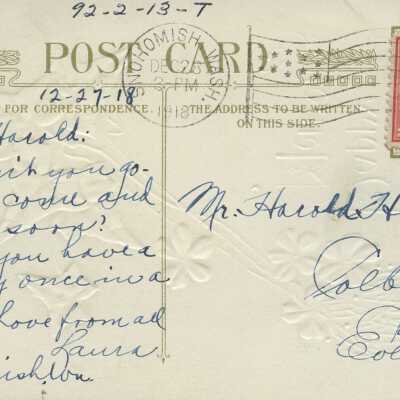 92-2-13-T
POST CARD
SNOHOMISH, WASH.
DEC 26
PM
1918
12-27-18
FOR CORRESPONDENCE.
THE ADDRESS TO BE WRITTEN
ON THIS SIDE.
Harold:
you go-
come and
soon?
you have a
once in a
Love from all
Laura
Mr. Harold H
Colb